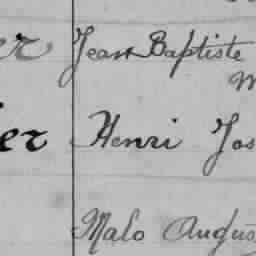 er Jean Baptiste
M
er Henri Jos
Malo Augus